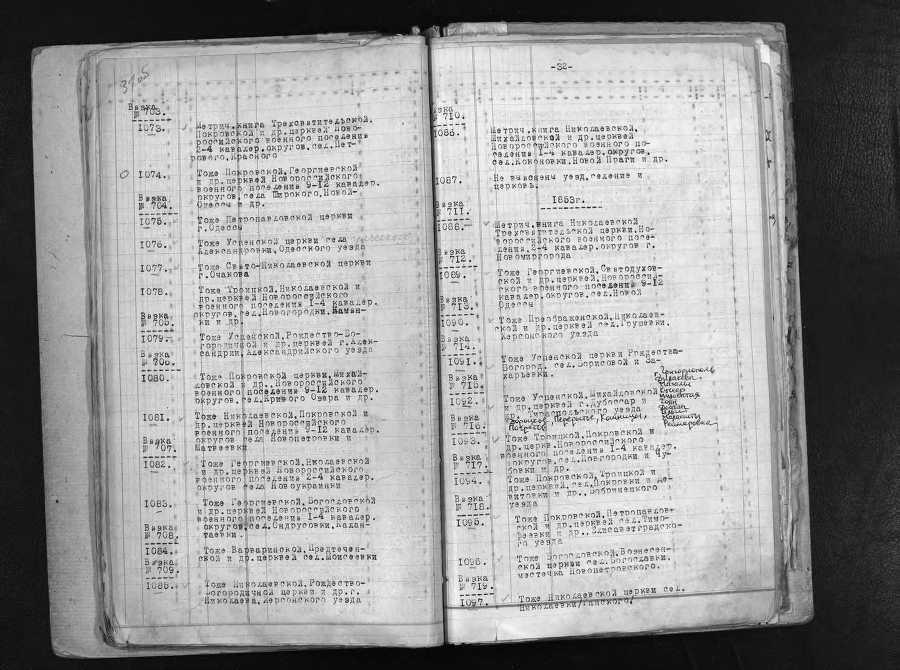 3705
Вязка
№ 703.
1073. Метрич.книга Трехсвятительской,
Покровской и др.церквей Ново-
российского военного поселения
2-4 кавалер.округов,сел.Пет-
рового,Красного
1074. Тоже Покровской,Георгиевской
и др.церквей Новороссийского
военного поселения 9-12 кавалер.
округов,села Широкого,Новой-
Одессы и др.
Вязка
№ 704.
1075. Тоже Петропавловской церкви
г.Одессы
1076. Тоже Успенской церкви села
Александровки,Одесского уезда
1077. Тоже Свято-Николаевской церкви
г.Очакова
1078. Тоже Троицкой,Николаевской и
др.церквей Новороссийского
военного поселения 1-4 кавалер.
округов,сел.Новогородки,Камен-
ки и др.
Вязка
№ 705.
1079. Тоже Успенской,Рождество-Бо-
городичной и др.церквей г.Алек-
сандрии,Александрийского уезда
Вязка
№ 706.
1080. Тоже Покровской церкви,Михай-
ловской и др.,Новороссийского
военного поселения 9-12 кавалер.
округов,сел.Кривого Озера и др.
1081. Тоже Николаевской,Покровской и
др.церквей Новороссийского
военного поселения 9-12 кавалер.
округов села Новопетровки и
Матвеевки
Вязка
№ 707.
1082. Тоже Георгиевской,Николаевской
и др.церквей Новороссийского
военного поселения 2-4 кавалер.
округов села Новоукраинки
1083. Тоже Георгиевской,Богословской
и др.церквей Новороссийского
военного поселения 1-4 кавалер.
округов,сел.Ондрусовки,Калан-
таевки.
Вязка
№ 708.
1084. Тоже Варваринской,Предтечен-
ской и др.церквей сел.Моисеевки
Вязка
№ 709.
1085. Тоже Николаевской,Рождество-
Богородичной церкви и др.г.
Николаева,Херсонского уезда
-32-
Вязка
№ 710.
1086. Метрич.книга Николаевской,
Михайловской и др.церквей
Новороссийского военного по-
селения 1-4 кавалер.округов,
сел.Коконовки,Новой Праги и др.
1087. Не выяснен уезд,селение и
церковь.
1853г.
Вязка
№ 711.
1088. Метрич.книга Николаевской
Трехсвятительской церкви,Но-
вороссийского военного посе-
ления,2-4 кавалер.округов г.
Новомиргорода
Вязка
№ 712.
1089. Тоже Георгиевской,Святодухов-
ской и др.церквей,Новороссий-
ского военного поселения 9-12
кавалер.округов,сел.Новой
Одессы
Вязка
№ 713.
1090. Тоже Преображенской,Николаев-
ской и др.церквей сел.Грушевки,
Херсонского уезда
Вязка
№ 714.
1091. Тоже Успенской церкви Рождества-
Богород. сел.Борисовой и За-
харьевки.
Вязка
№ 715.
1092. Тоже Успенской,Михайловской
и др.церквей г.Дубоссар и
др. Тираспольского уезда
г. Григориополь
Вязка
№ 716.
1093. Тоже Троицкой,Покровской и
др.церкв.Новороссийского
военного поселения 1-4 кавалер.
округов,сел.Новгородки и Чу-
бовки и др.
Вязка
№ 717.
1094. Тоже Покровской,Троицкой и
др.церквей,сел.Покровки и Ле-
витовки и др.,Бобринецкого
уезда
Вязка
№ 718.
1095. Тоже Покровской,Петропавлов-
ской и др.церквей сел.Тимо-
феевки и др.,Елисаветградско-
го уезда
1096. Тоже Богословской,Вознесен-
ской церкви сел.Богославки,
местечка Новопетровского.
Вязка
№ 719
1097. Тоже Николаевской церкви сел.
Николаевки/Ганского/